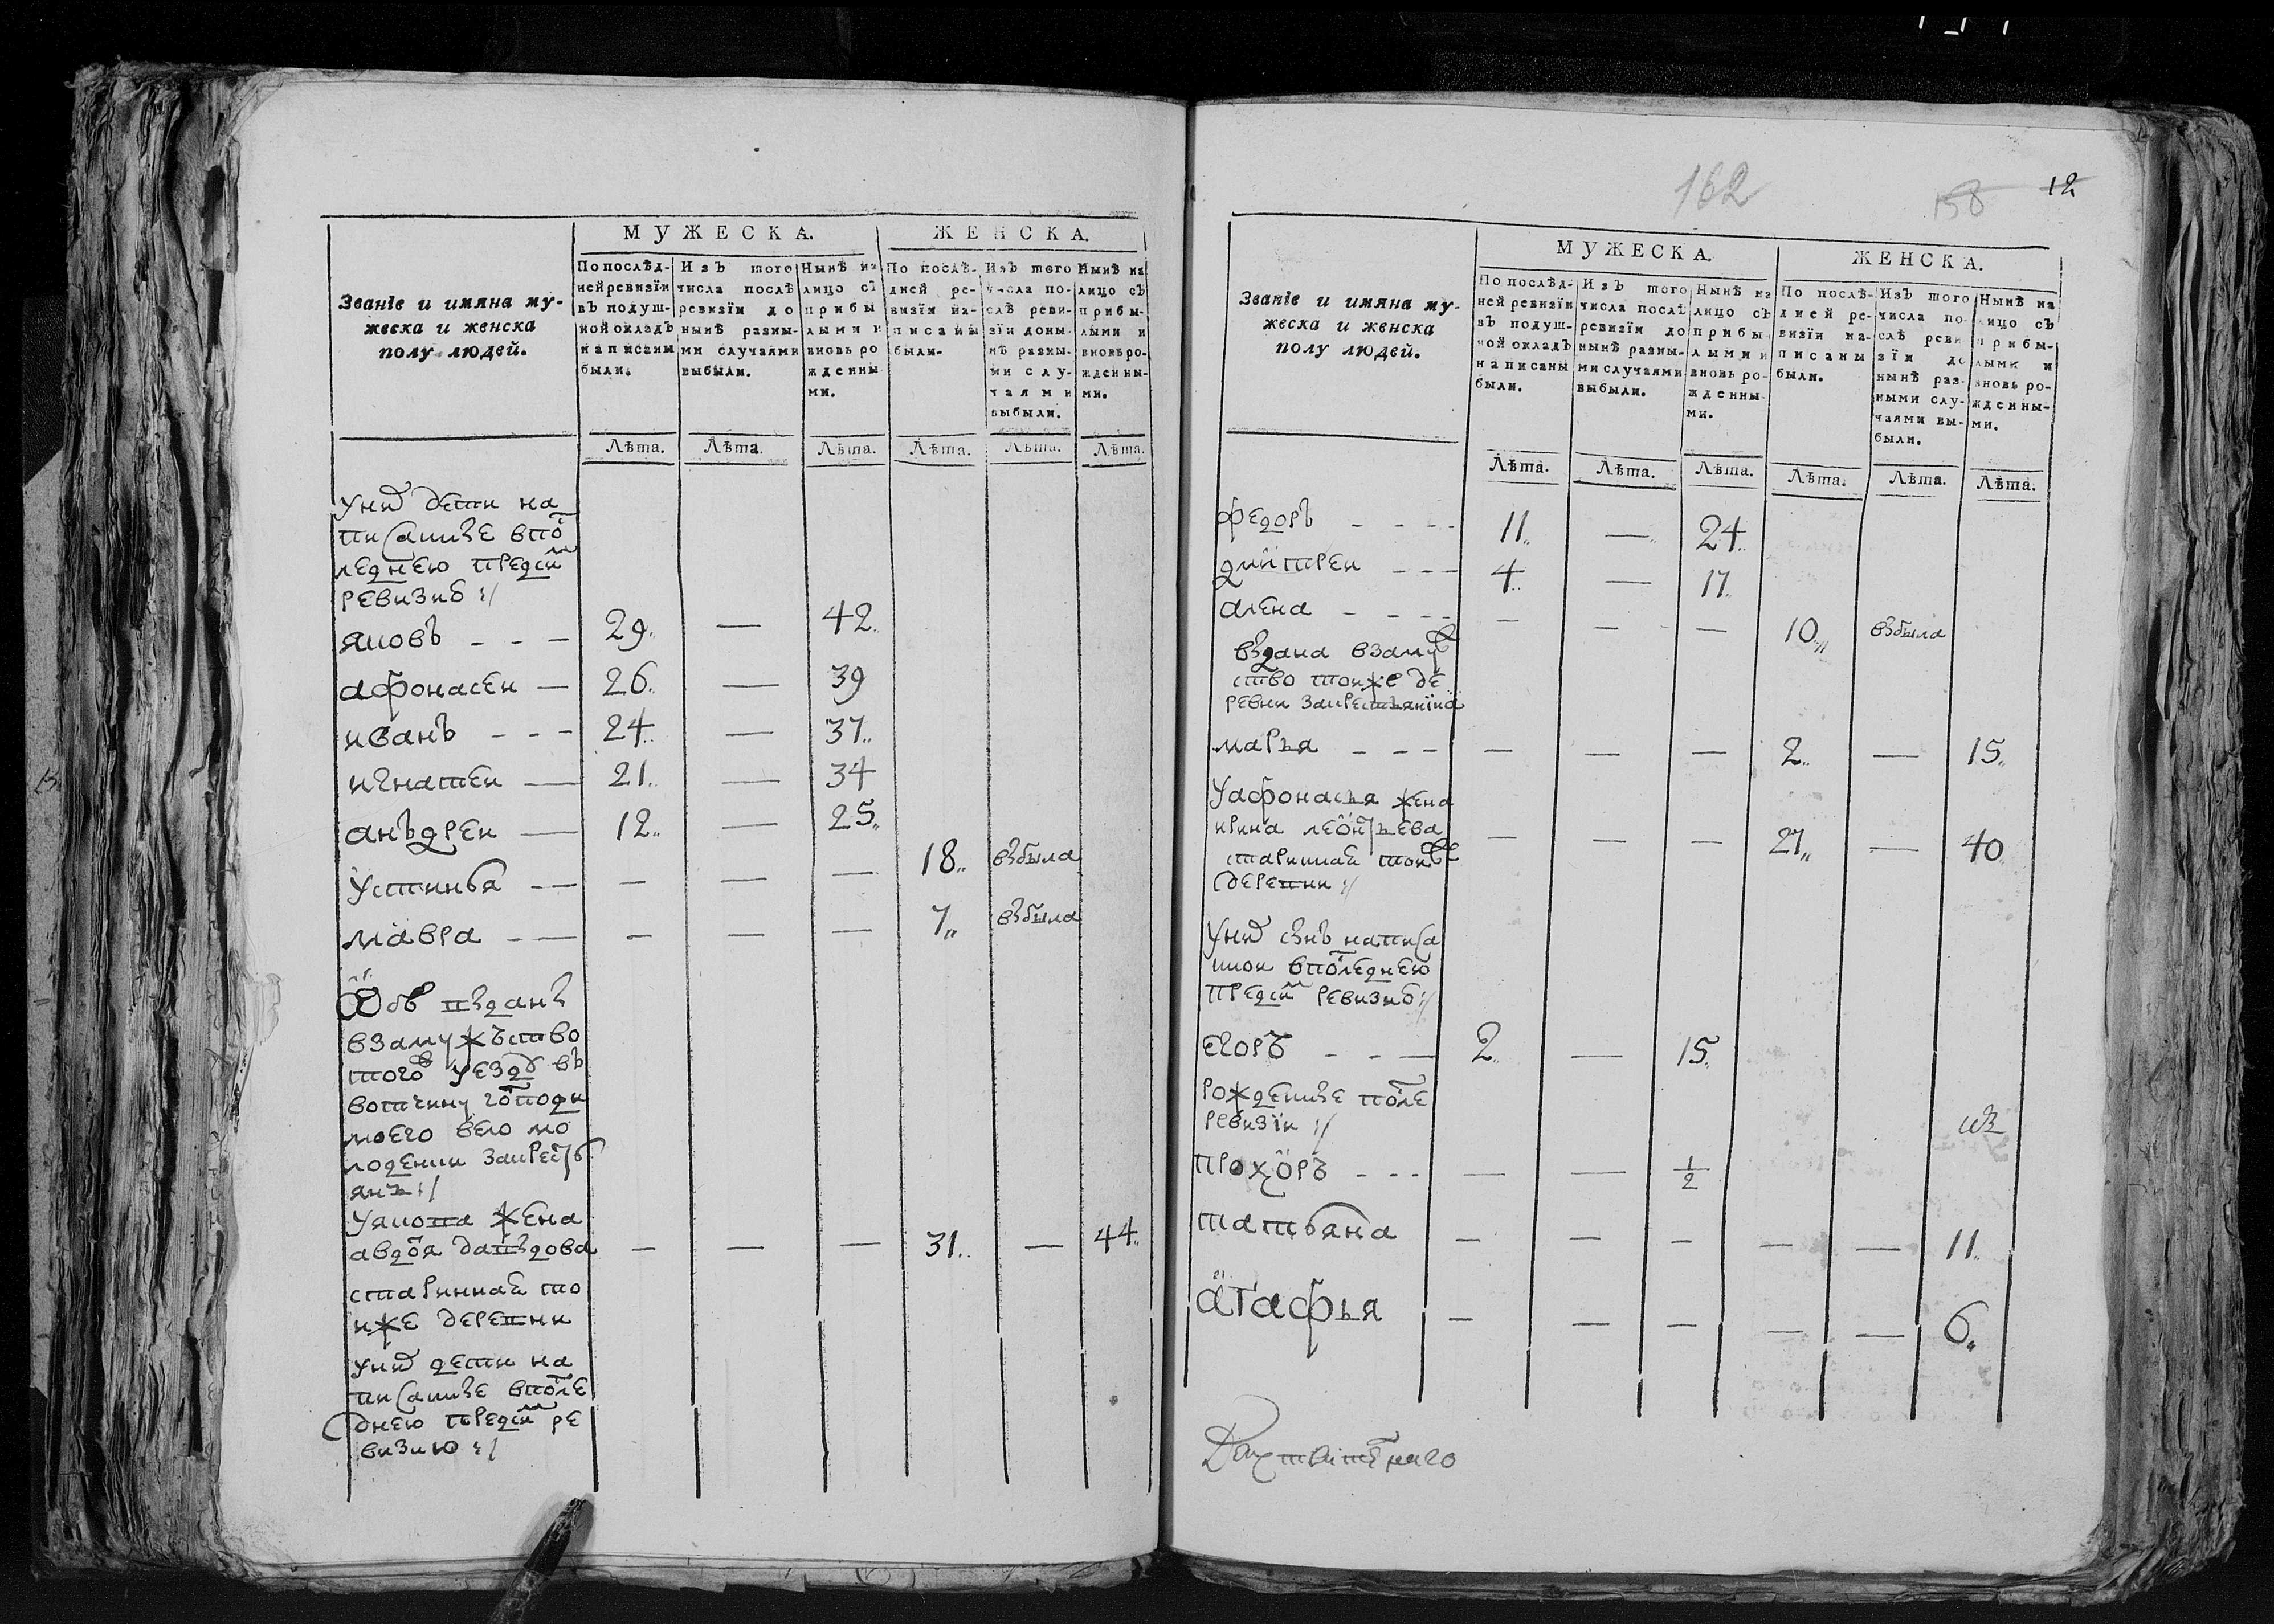 МУЖЕСКА.
ЖЕНСКА.
Званіе и имяна му-
жеска и женска
полу людей.
По послѣд-
ней ревизіи
въ подуш-
ной окладъ
написаны
были.
Изъ того
числа послѣ
ревизіи до
нынѣ разны-
ми случаями
выбыли.
Нынѣ на
лицо съ
прибы
лыми и
вновь ро
жденны
ми.
По послѣ-
дней ре-
визіи на-
писаны
были.
Изъ того
числа по-
слѣ реви-
зіи доны-
нѣ разны-
ми слу-
чаями
выбыли.
Нынѣ на
лицо съ
прибы-
лыми и
вновь ро-
жденны-
ми.
Лѣта. Лѣта. Лѣта. Лѣта. Лѣта. Лѣта.
у них дети на
писаные в по
леднею пред сим
ревизию :/
яковъ - - - 29.. — 42..
афонасеи — 26.. — 39
иванъ - - - 24.. — 37..
игнатеи — 21.. — 34
анъдреи — 12.. — 25..
устинья - — — — — 18.. выбыла
мавра - — — — — 7.. выбыла
обе выданы
взамужъство
того уезду въ
вотчину господи
моего
лоденки за крестъ
янъ :/
у якова жена
авдотя давыдова — — — 31.. — 44..
старинная то
иже деревни
у них дети на
писаные в после
днею пред сим ре
визию :/
162
158 12
МУЖЕСКА.
ЖЕНСКА.
Званіе и имяна му-
жеска и женска
полу людей.
По послѣд-
ней ревизіи
въ подуш-
ной окладъ
написаны
были.
Изъ того
числа послѣ
ревизіи до
нынѣ разны-
ми случаями
выбыли.
Нынѣ на
лицо съ
прибы
лыми и
вновь ро-
жденны-
ми.
По послѣ-
дней ре-
визіи на-
писаны
были.
Изъ того
числа по-
слѣ реви
зіи до
нынѣ раз-
ными слу-
чаями вы-
были.
Нынѣ на
лицо съ
прибы-
лыми и
вновь ро-
жденны-
ми.
Лѣта. Лѣта. Лѣта. Лѣта. Лѣта. Лѣта.
федоръ - - - - 11.. — 24..
дмитреи - - - 4.. — 17..
алена - - - - — — — 10.. выбыла
выдана взамуж
ство тоиже де
ревни за крестьянина
марья - - - — — — 2.. — 15..
у афонасья жена
ирина леонтьева — — — 27.. — 40
старинная тоиже
деревни :/
у них сынъ написа
нои в последнею
пред сим ревизию :/
егоръ - - — 2.. — 15..
рожденые после
ревизіи :/
прохоръ - - - — — 1/2
татьяна — — — — — 11..
агафья — — — — — 6..